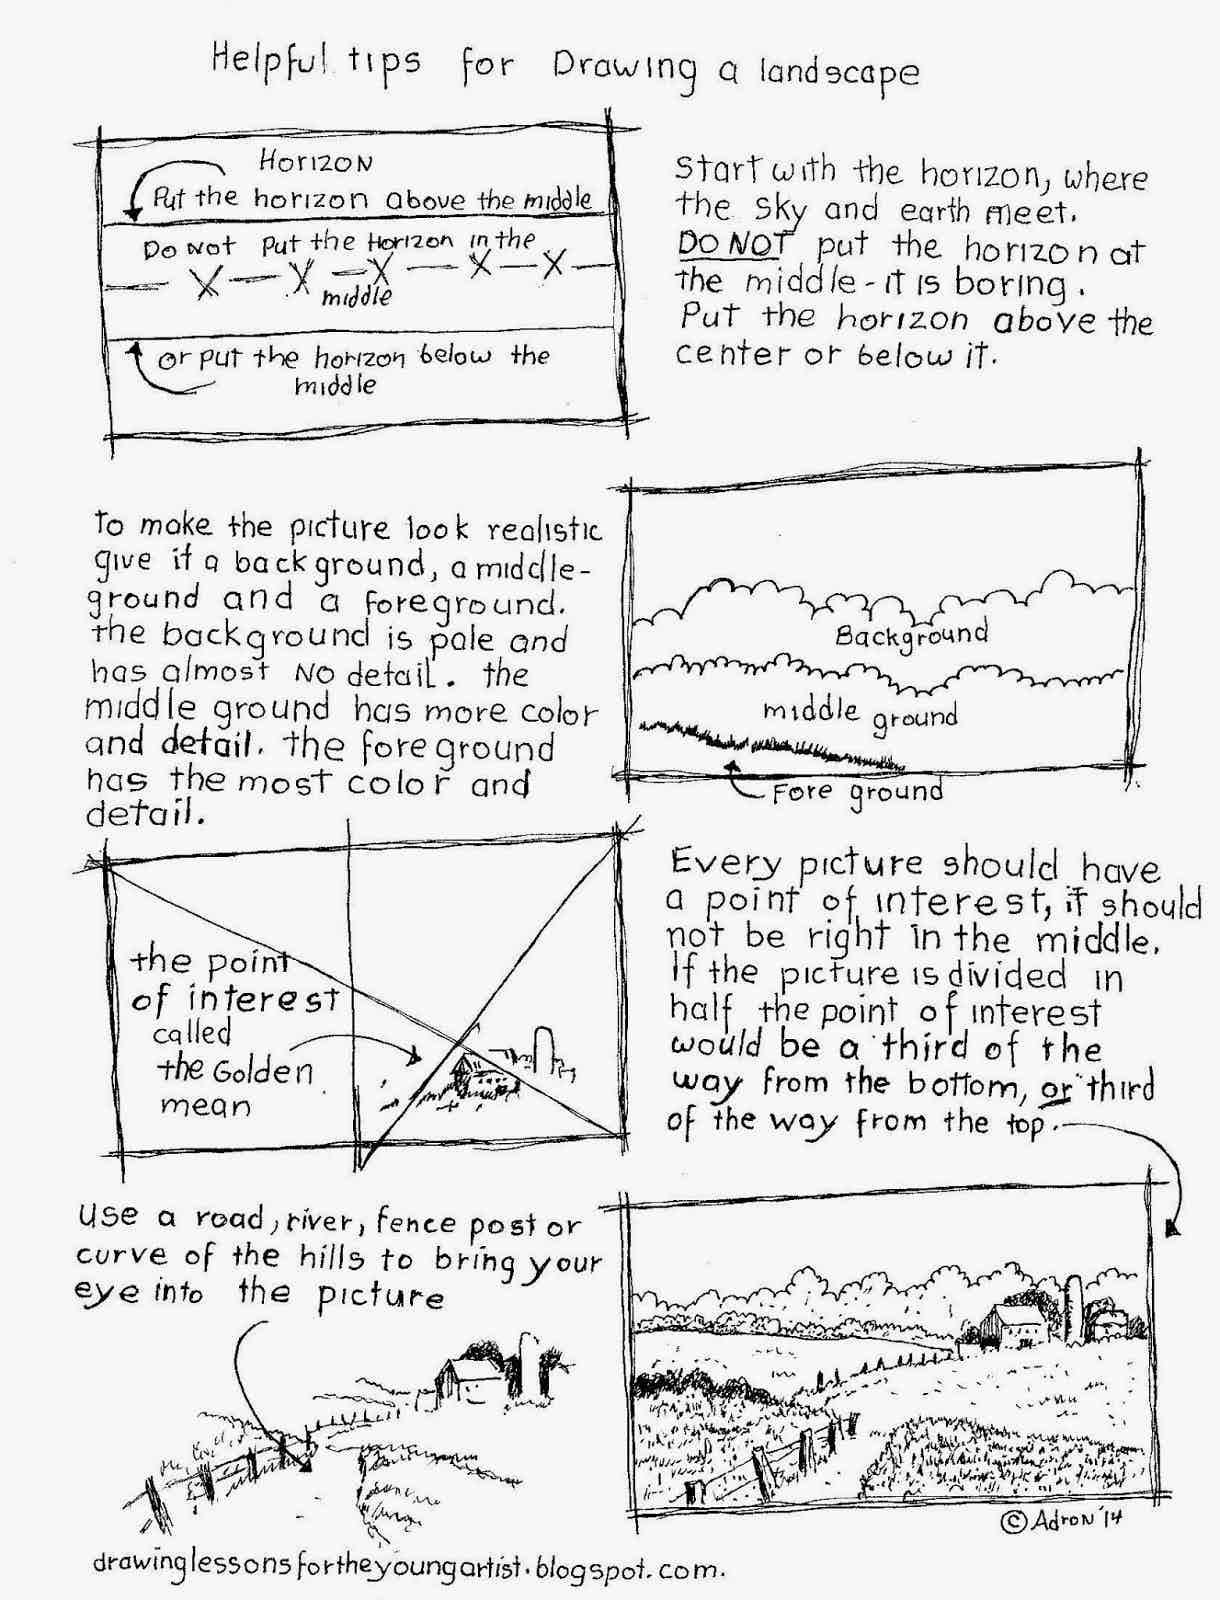 Helpful tips for Drawing a landscape
Horizon
Put the horizon above the middle
Do Not Put the Horizon in the
middle
or put the horizon below the
middle
Start with the horizon, where
the sky and earth meet.
DO NOT put the horizon at
the middle - it is boring.
Put the horizon above the
center or below it.
To make the picture look realistic
give it a background, a middle-
ground and a foreground.
the background is pale and
has almost No detail. the
middle ground has more color
and detail. the foreground
has the most color and
detail.
Background
middle ground
Fore ground
the point
of interest
called
the Golden
mean
Every picture should have
a point of interest, it should
not be right in the middle.
If the picture is divided in
half the point of interest
would be a third of the
way from the bottom, or third
of the way from the top.
Use a road, river, fence post or
curve of the hills to bring your
eye into the picture
© Adron '14
drawinglessonsfortheyoungartist.blogspot.com.